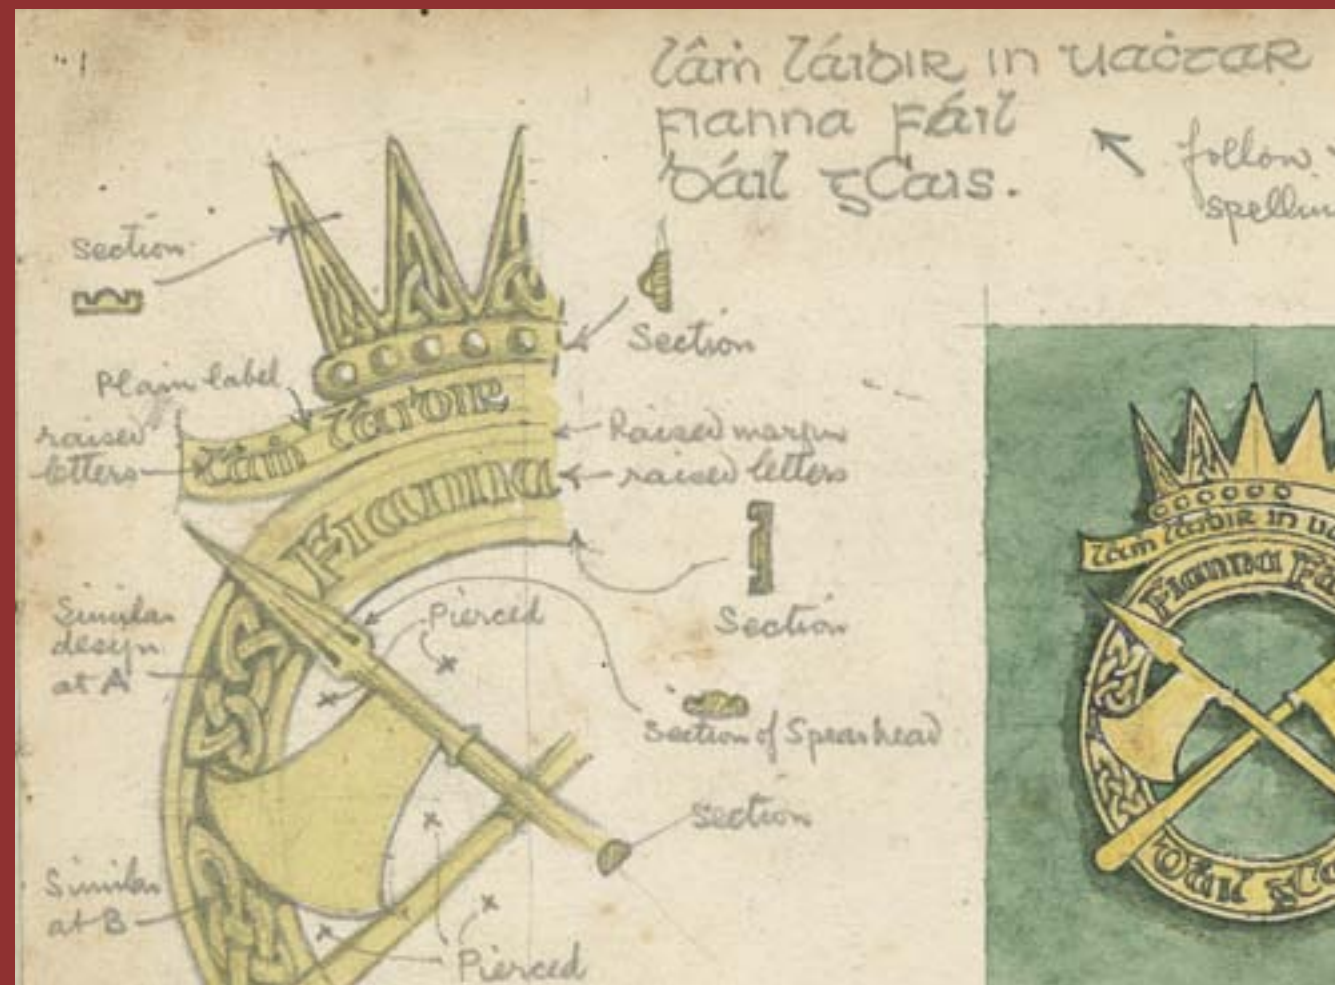 lâṁ láidir in uaċtar
Fianna Fáil
Dáil gCais.
follow
spellin
Section
Section
Plain label
raised
letters
láṁ láidir
Raised margin
raised letters
Fianna
Section
Similar
design
at A
Pierced
Section of Spearhead
Section
Similar
at B
Pierced
láṁ láidir in ua
Fianna Fá
Dáil gCa